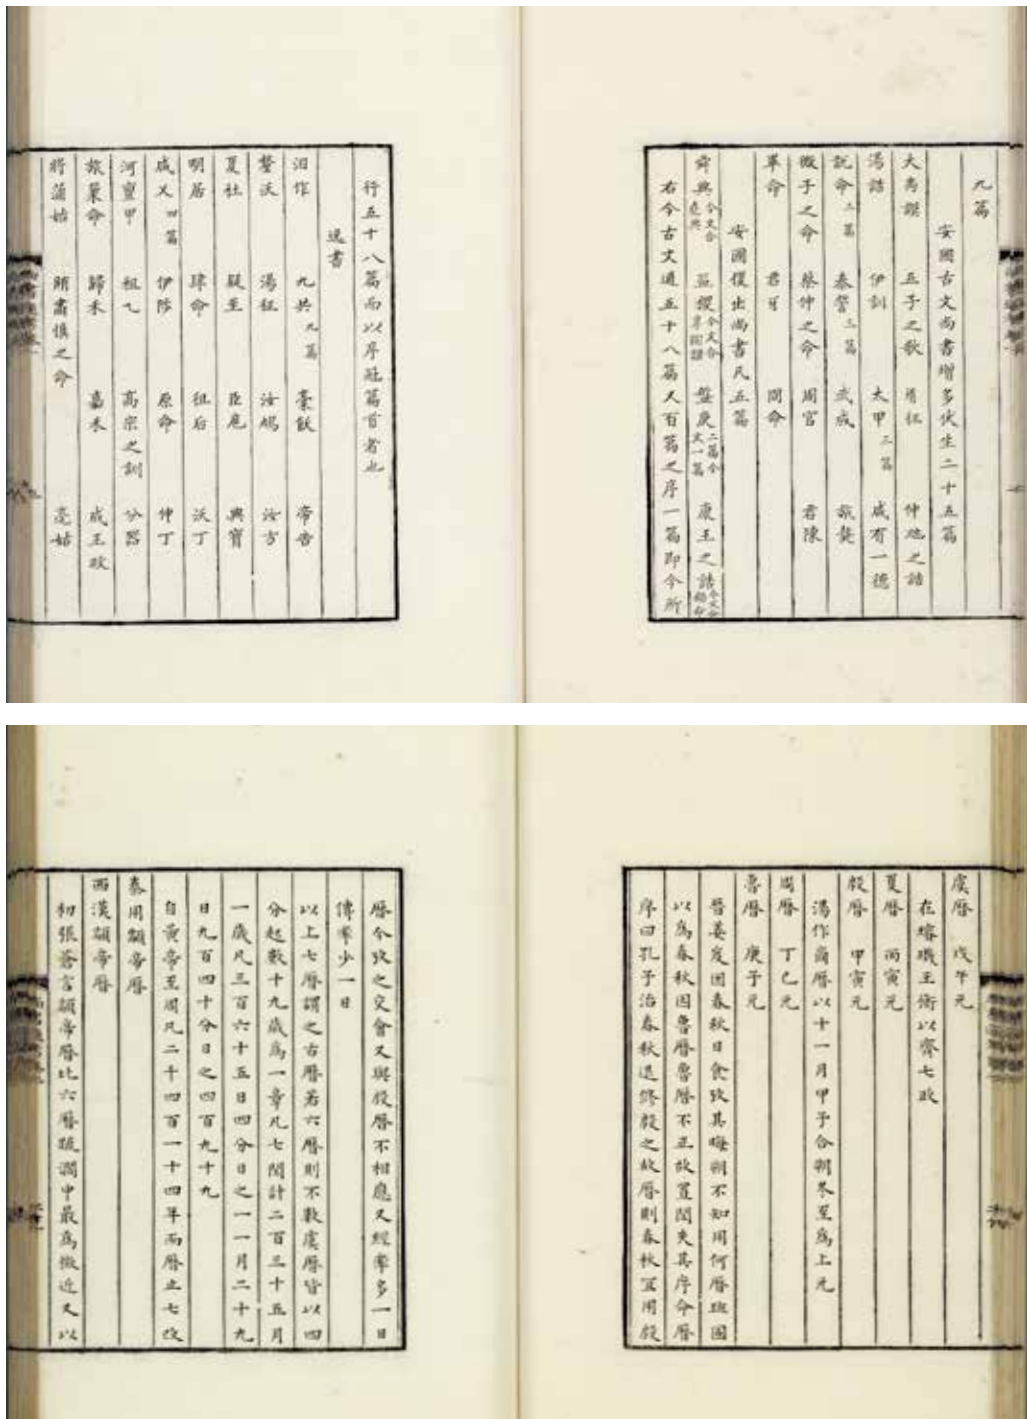 九篇
安國古文尚書增多伏生二十五篇
大禹謨 五子之歌 胤征 仲虺之誥
湯誥 伊訓 太甲三篇 咸有一德
說命三篇 泰誓三篇 武成 旅獒
微子之命 蔡仲之命 周官 君陳
畢命 君牙 冏命
安國復出尚書凡五篇
舜典今文合堯典 益稷今文合皋陶謨 盤庚二篇今文一篇 康王之誥今文合顧命
右今古文通五十八篇又百篇之序一篇即今所
行五十八篇而以序冠篇首者也
逸書
汩作 九共九篇 槀飫 帝告
釐沃 湯征 汝鳩 汝方
夏社 疑至 臣扈 典寶
明居 肆命 徂后 沃丁
咸乂四篇 伊陟 原命 仲丁
河亶甲 祖乙 高宗之訓 分器
旅巢命 歸禾 嘉禾 成王政
將蒲姑 賄肅慎之命 亳姑
虞曆 戊午元
在璿璣玉衡以齊七政
夏曆 丙寅元
殷曆 甲寅元
湯作商曆以十一月甲子合朔冬至為上元
周曆 丁巳元
魯曆 庚子元
晉姜岌因春秋日食攷其晦朔不知用何曆班固
以為春秋因魯曆魯曆不正故置閏失其序命曆
序曰孔子治春秋退修殷之故曆則春秋宜用殷
曆今攷之交會又與殷曆不相應又經率多一日
傳率少一日
以上七曆謂之古曆若六曆則不數虞曆皆以四
分起數十九歲為一章凡七閏計二百三十五月
一歲凡三百六十五日四分日之一一月二十九
日九百四十分日之四百九十九
自黃帝至周凡二千四百一十四年而曆止七改
秦用顓帝曆
西漢顓帝曆
初張蒼言顓帝曆比六曆疏濶中最為微近又以